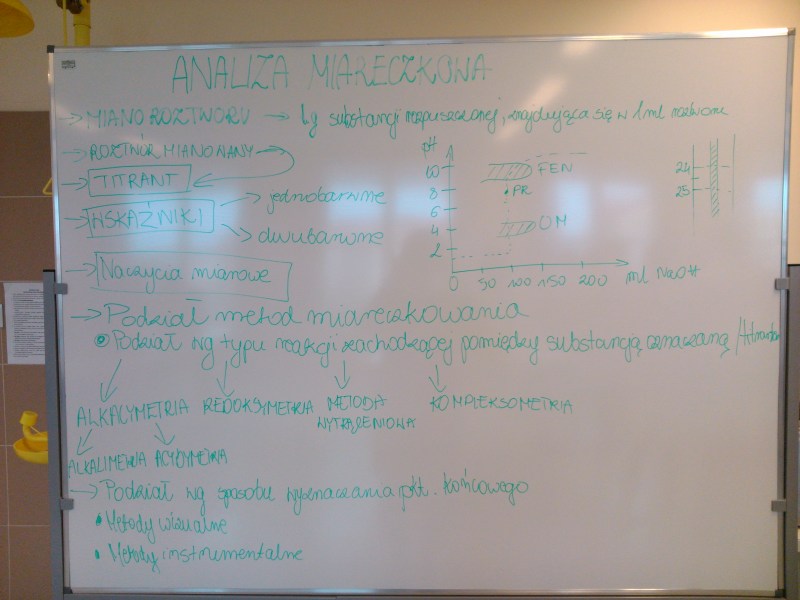 ANALIZA MIARECZKOWA
→ MIANO ROZTWORU → 1g substancji rozpuszczonej, znajdująca się w 1ml roztworu
→ ROZTWÓR MIANOWANY
→ TITRANT
→ WSKAŹNIKI
→ jednobarwne
→ dwubarwne
→ Naczycia mianowe
pH
10
8
6
4
2
0 50 100 150 200 ml NaOH
FEN
PR
OM
24
25
→ Podział metod miareczkowania
Podział wg typu reakcji zachodzącej pomiędzy substancją oznaczaną /
ALKACYMETRIA REDOKSYMETRIA METODA WYTRĄCENIOWA KOMPLEKSOMETRIA
ALKALIMETRIA ACYDYMETRIA
→ Podział wg sposobu wyznaczania pkt. końcowego
• Metody wizualne
• Metody instrumentalne